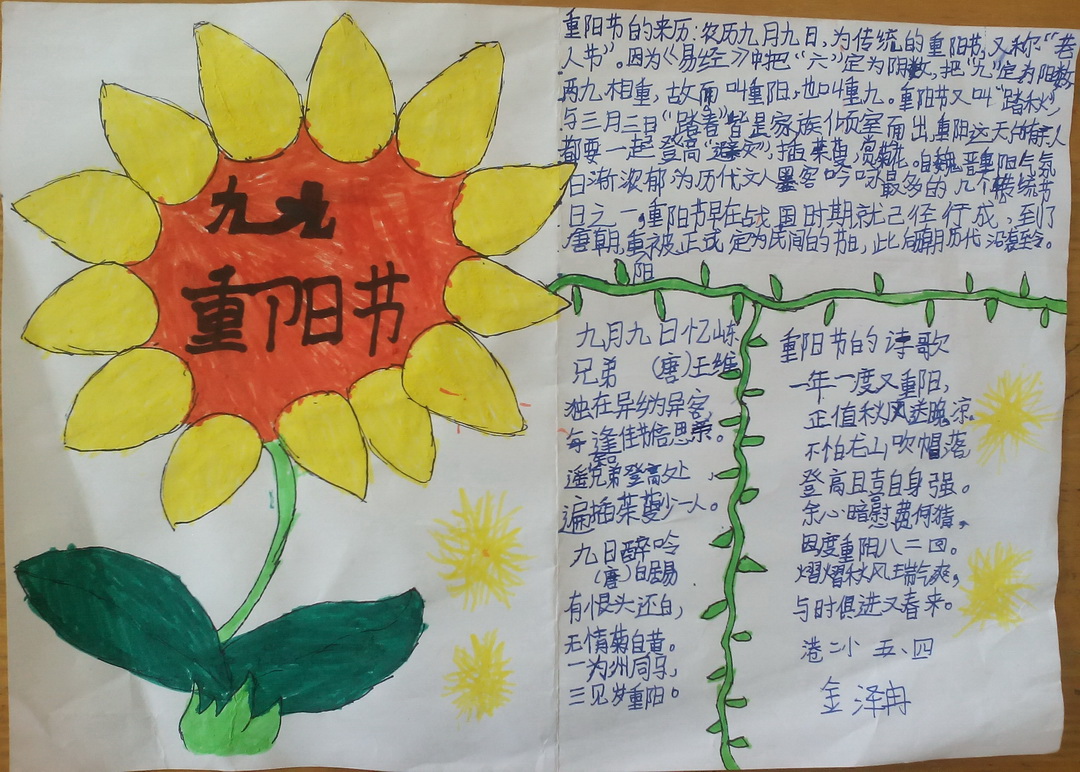 九九
重阳节
重阳节的来历:农历九月九日,为传统的重阳节,又称“老
人节”。因为《易经》中把“六”定为阴数,把“九”定为阳数
两九相重,故而叫重阳,也叫重九。重阳节又叫“踏秋”,
与三月三日“踏春”皆是家族倾室而出,重阳这天所有亲人
都要一起登高“避灾”,插茱萸、赏菊花 自魏晋重阳气氛
日渐浓郁,为历代文人墨客吟咏最多的几个传统节
日之一。重阳节早在战国时期就已经行成,到了
唐朝,重阳被正式定为民间的节日,此后历朝历代沿袭至今。
九月九日忆山东
兄弟 (唐)王维
独在异乡为异客,
每逢佳节倍思亲。
遥知兄弟登高处,
遍插茱萸少一人。
九日醉吟
(唐)白居易
有恨头还白,
无情菊自黄。
一为州司马,
三见岁重阳。
重阳节的诗歌
一年一度又重阳,
正值秋风透晚凉。
不怕龙山吹帽落
登高且喜自身强。
余心暗慰莫何猜,
因度重阳八二回。
熠熠秋风瑞气爽,
与时俱进又春来。
港二小 五、四
金泽冉